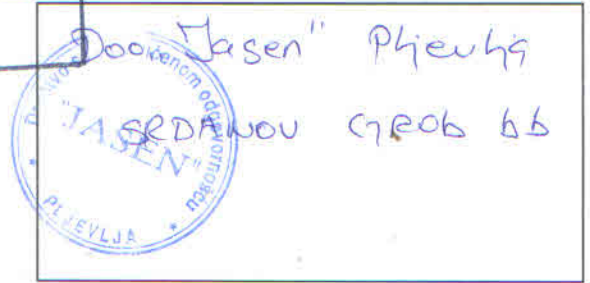 Doo "Jasen" Pljevlja
SRDANOV GROB bb
ograničenom odgovornošću
"JASEN"
* PLJEVLJA *